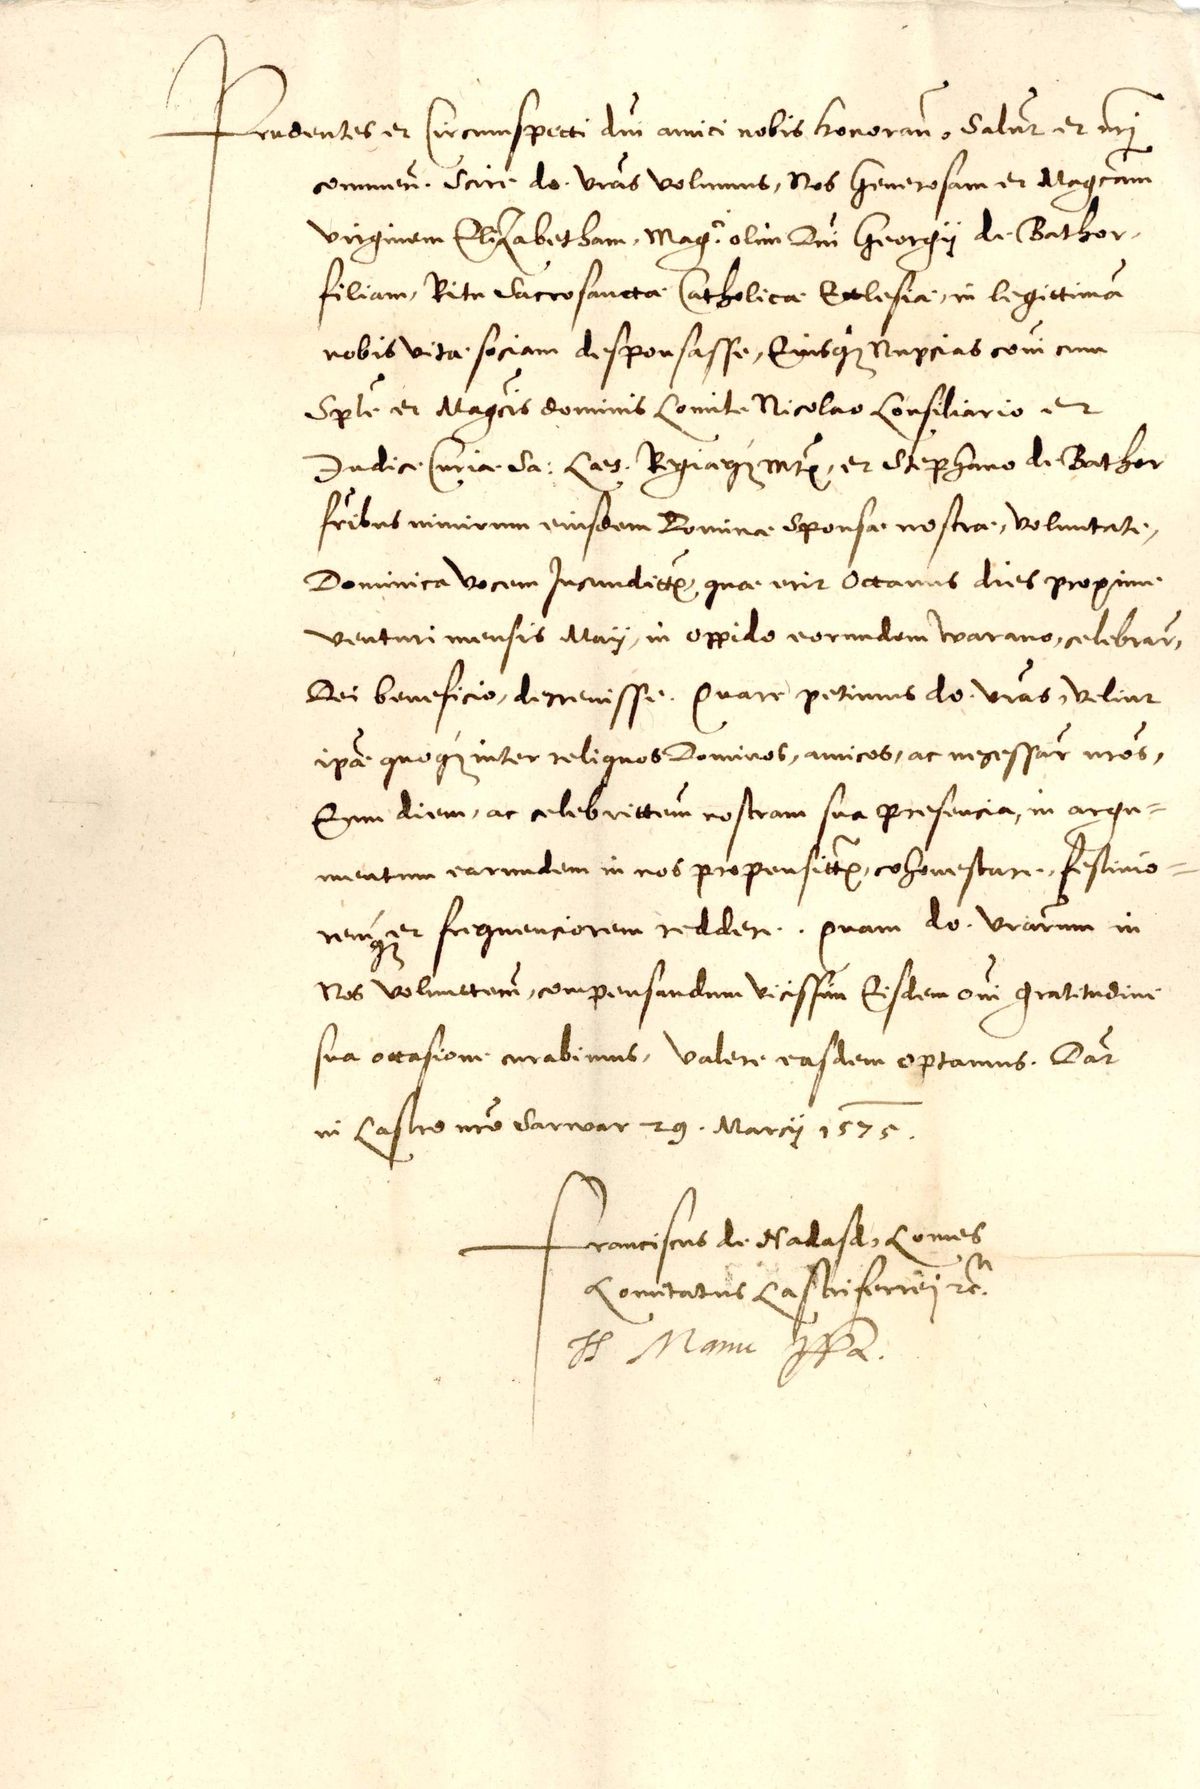 Prudentes et Circumspecti dni amici nobis honoran. Salut et nri
commen. Scire do. vras volumus, Nos Generosam et Magcam
virginem Elizabetham, Mag.ci olim Dni Georgij de Bathor,
filiam, Ritu Sacrosanctæ Catholicæ Ecclesiæ, in legittima
nobis vitæ sociam desponsasse, Eiusq3 Nupcias coi cum
Sple et Magcis dominis Comite Nicolao Consiliario et
Iudice Curiæ Sa: Caes. Regiæq3 Mtis, et Stephano de Bathor
fribus nimirum eiusdem Dominæ Sponsæ nostræ, voluntate,
Dominica Vocem Iucundittis, quæ erit Octauus dies proxime
venturi mensis Maij, in oppido eorundem Warano, celebrar,
Dei beneficio, decreuisse. Quare petimus do. vras, velint
ipæ quoq3 inter reliquos Dominos, amicos, ac necessar nros,
Eum diem, ac celebrittem nostram sua presencia, in argu=
mentum earundem in nos propensittis, cohonestare, festiuio=
remq3 et frequenciorem reddere. Quam do. vrarum in
Nos volunttem, compensandum vicissim Eisdem oni gratitudine
sua occasione curabimus, Valere easdem optamus. Dat
in Castro nro Sarwar 29. Marcij 1575.
Franciscus de Nadasd, Comes
Comitatus Castriferrei etc.
Manu ppa.